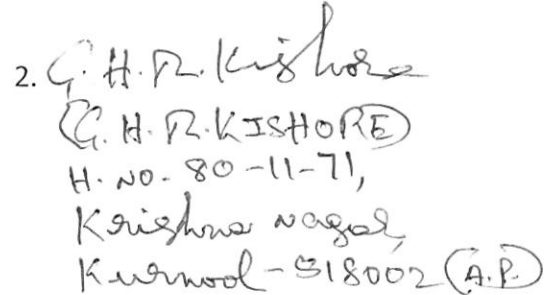 2. G. H. R. Kishore
(G. H. R. KISHORE)
H. NO. 80-11-71,
Krishna Nagar,
Kurnool - 518002 (A.P.)